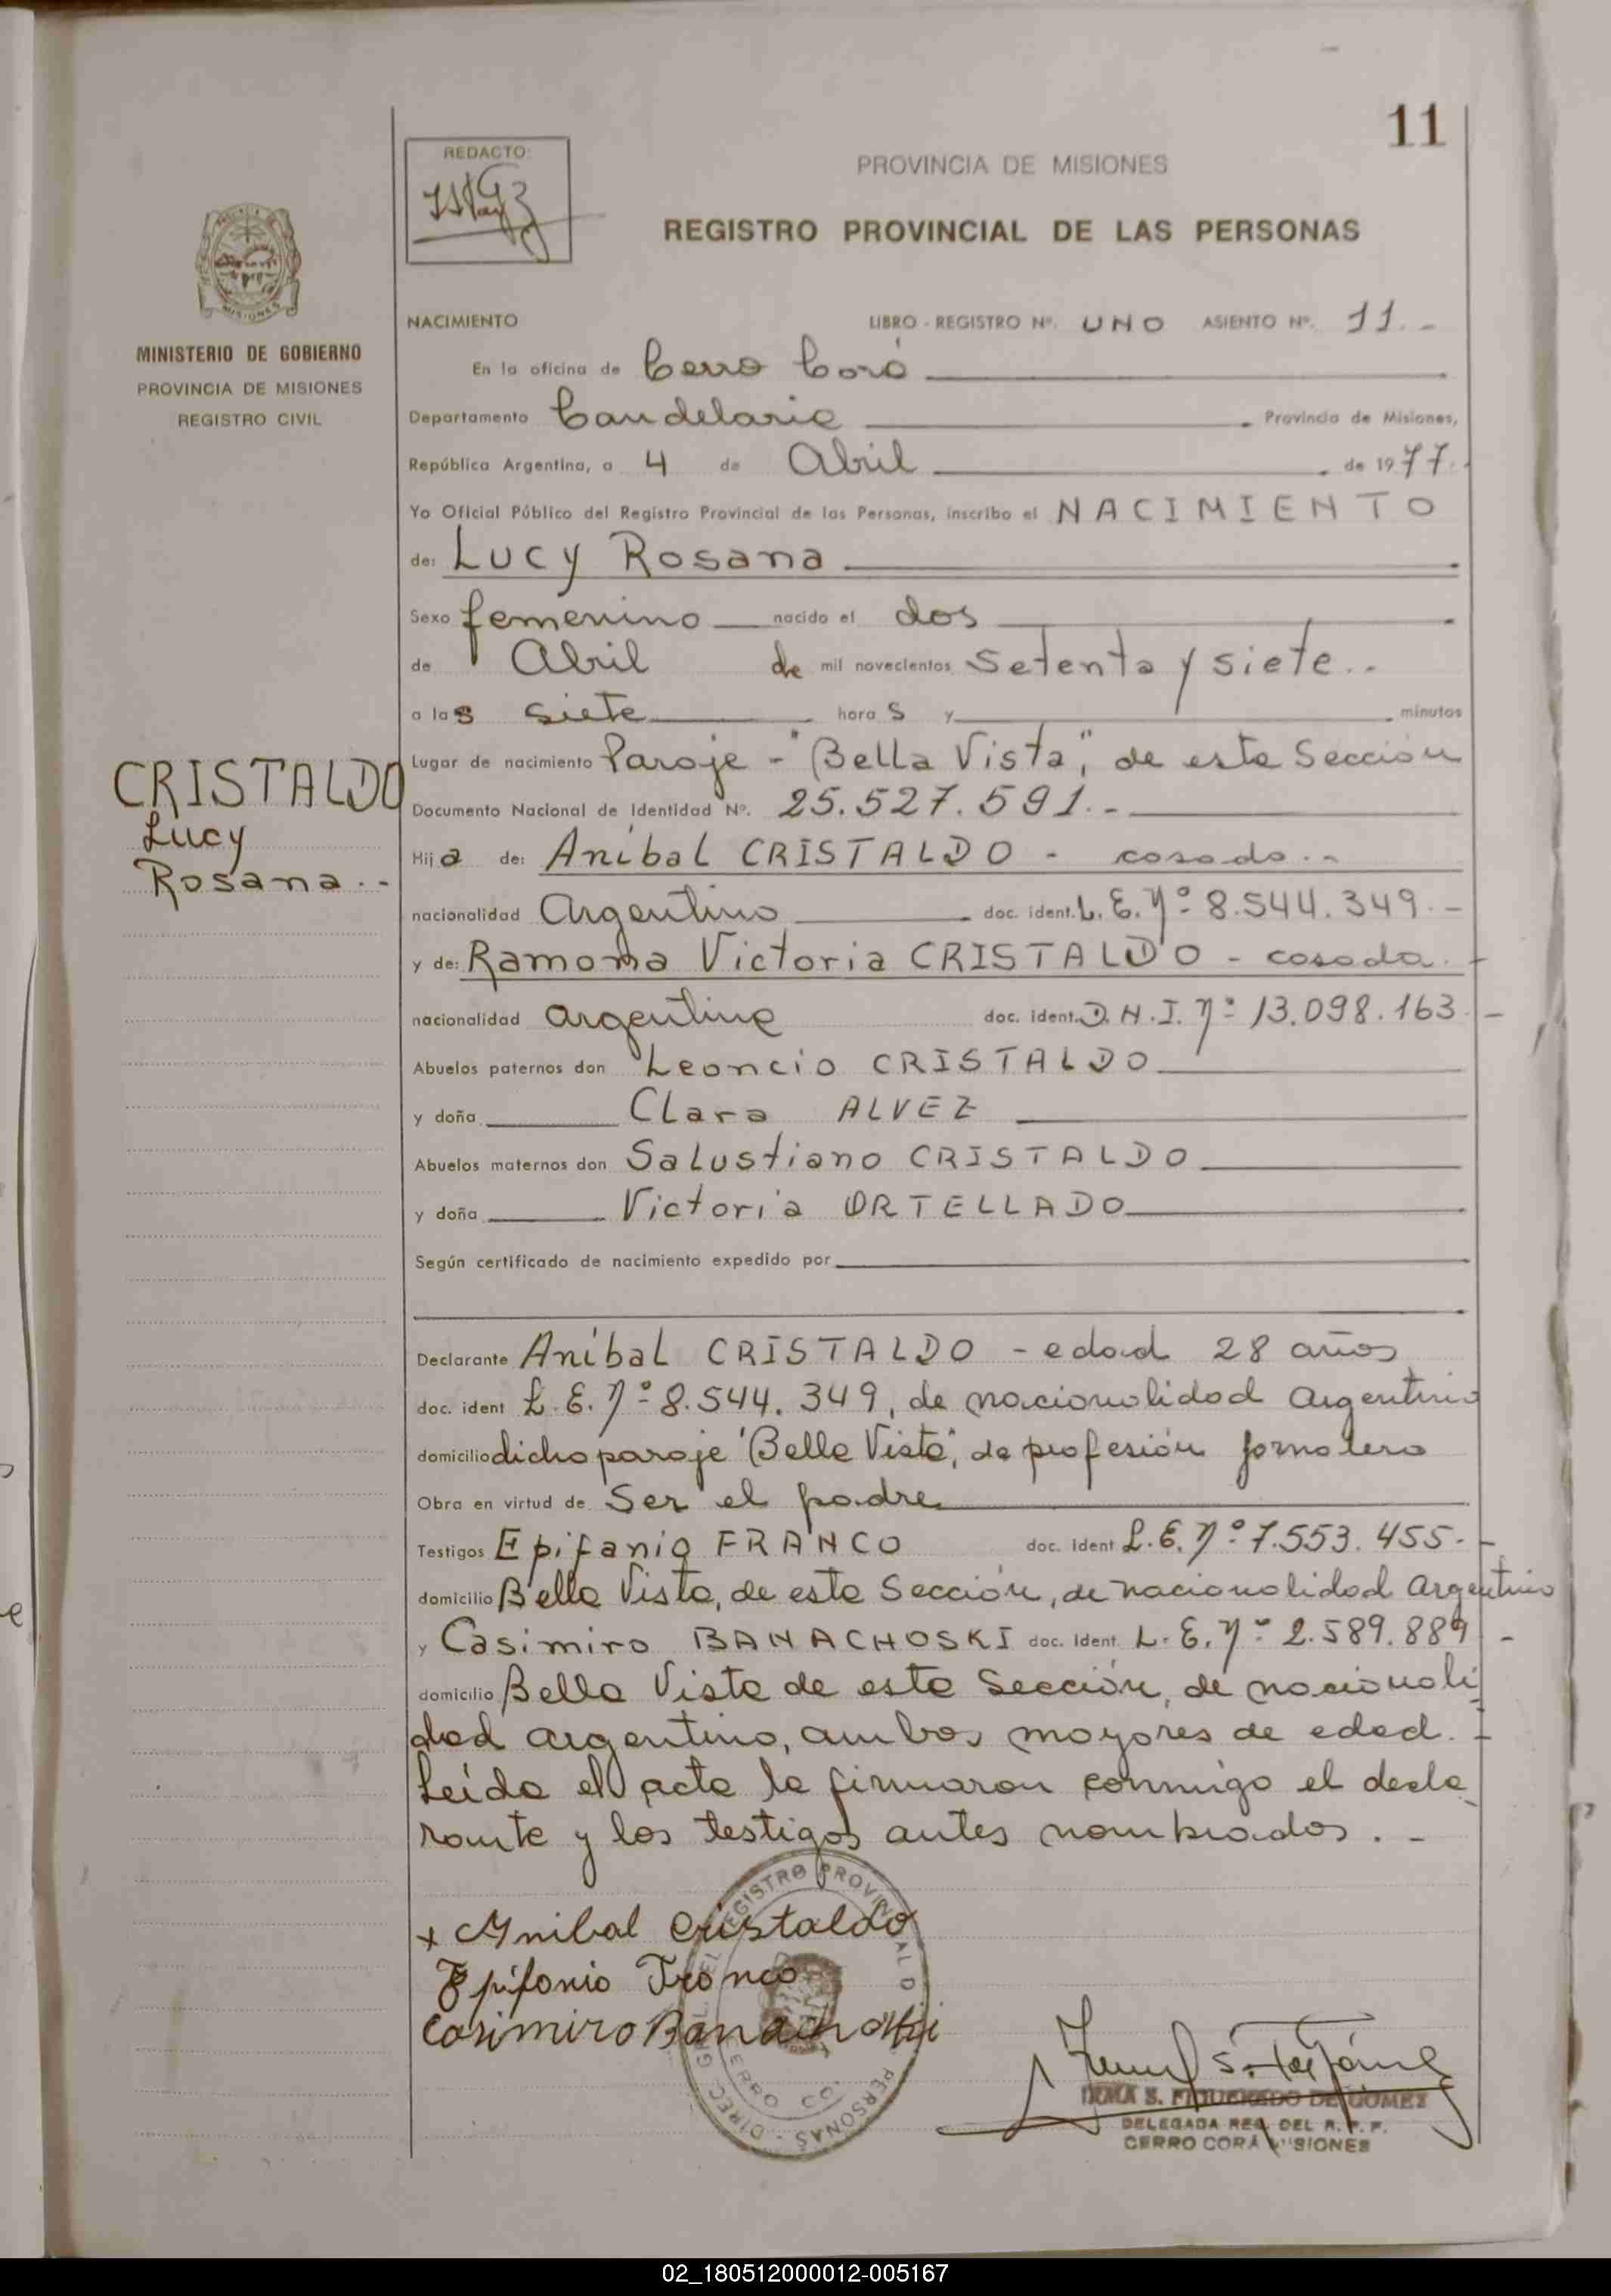 11
REDACTO:
PROVINCIA DE MISIONES
REGISTRO PROVINCIAL DE LAS PERSONAS
MINISTERIO DE GOBIERNO
PROVINCIA DE MISIONES
REGISTRO CIVIL
NACIMIENTO LIBRO - REGISTRO Nº. UNO ASIENTO Nº. 11.-
En la oficina de Cerro Corá
Departamento Candelaria Provincia de Misiones,
República Argentina, a 4 de Abril de 1977.
Yo Oficial Público del Registro Provincial de las Personas, inscribo el NACIMIENTO
de: Lucy Rosana
Sexo femenino nacido el dos
de Abril de mil novecientos setenta y siete..
a las siete horas y minutos
Lugar de nacimiento Paraje - "Bella Vista", de esta Sección
Documento Nacional de Identidad Nº. 25.527.591.-
CRISTALDO
Lucy
Rosana.-
Hija de: Aníbal CRISTALDO - casado.-
nacionalidad Argentino doc. ident. L.E.Nº 8.544.349.-
y de: Ramona Victoria CRISTALDO - casada.-
nacionalidad argentina doc. ident. D.N.I. Nº 13.098.163.-
Abuelos paternos don Leoncio CRISTALDO
y doña Clara ALVEZ
Abuelos maternos don Salustiano CRISTALDO
y doña Victoria ORTELLADO
Según certificado de nacimiento expedido por
Declarante Aníbal CRISTALDO - edad 28 años
doc. ident L.E.Nº 8.544.349, de nacionalidad Argentino
domicilio dicho paraje "Bella Vista", de profesión jornalero
Obra en virtud de Ser el padre
Testigos Epifanio FRANCO doc. ident L.E.Nº 7.553.455.-
domicilio Bella Vista, de esta Sección, de nacionalidad Argentino
y Casimiro BANACHOSKI doc. ident. L.E.Nº 2.589.889 -
domicilio Bella Vista de esta Sección, de nacionali-
dad argentino, ambos mayores de edad.-
Leída el acta la firmaron conmigo el decla-
rante y los testigos antes nombrados.-
x Anibal Cristaldo
Epifanio Franco
Casimiro Banachoski
REGISTRO PROVINCIAL DE PERSONAS - DIREC. GRAL. DEL
CERRO CO.
IRMA S. FIGUEREDO DE GOMEZ
DELEGADA REG. DEL R. P. P.
CERRO CORA MISIONES
02_180512000012-005167